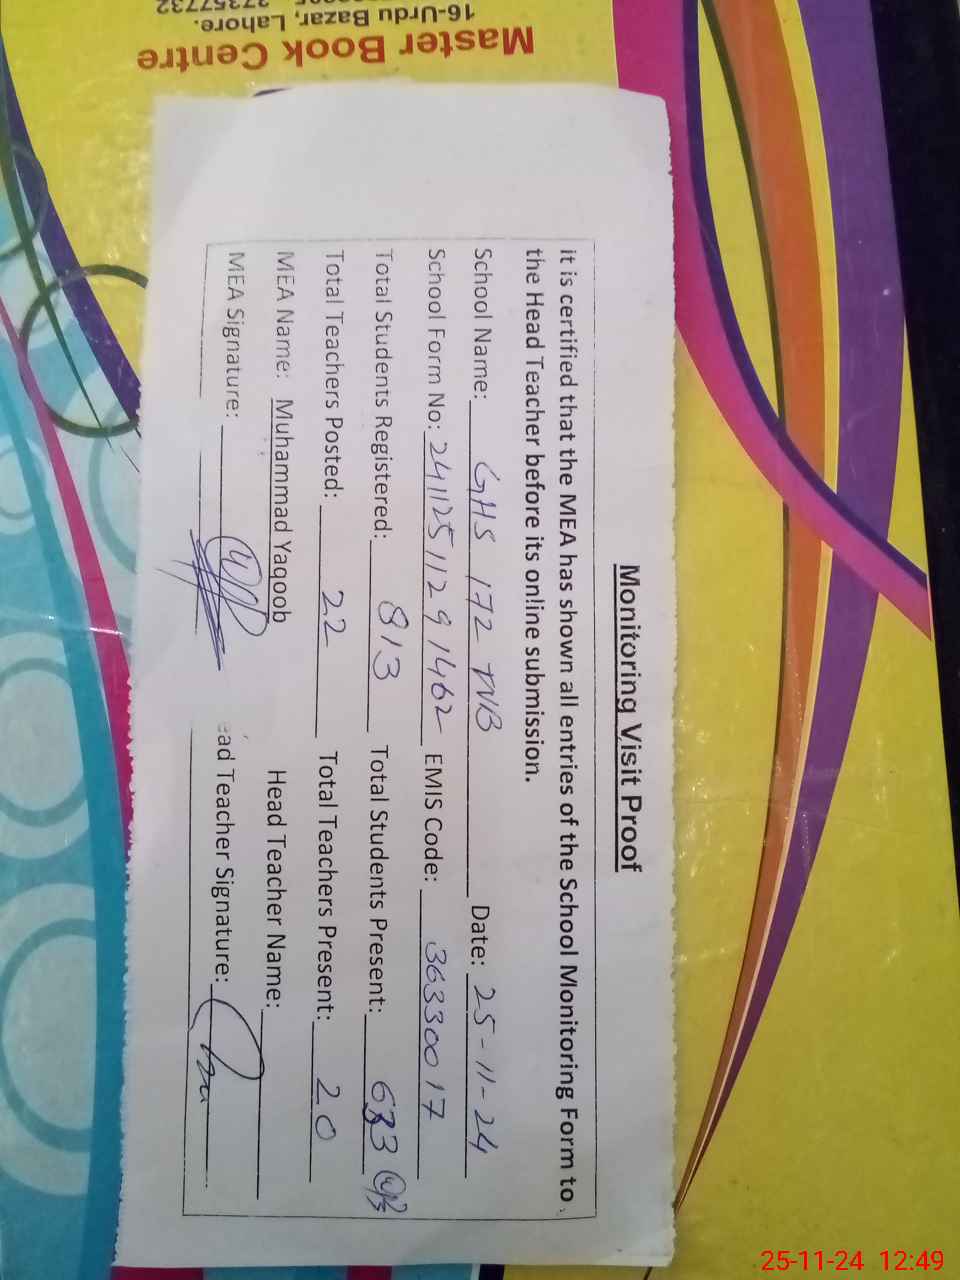 Monitoring Visit Proof
it is certified that the MEA has shown all entries of the School Monitoring Form to
the Head Teacher before its online submission.
School Name: GHS 172 WB Date: 25-11-24
School Form No: 24112511291462 EMIS Code: 36330017
Total Students Registered: 813 Total Students Present: 633
Total Teachers Posted: 22 Total Teachers Present: 20
MEA Name: Muhammad Yaqoob Head Teacher Name:
MEA Signature: ead Teacher Signature:
Master Book Centre
16-Urdu Bazar, Lahore.
37357732
25-11-24 12:49